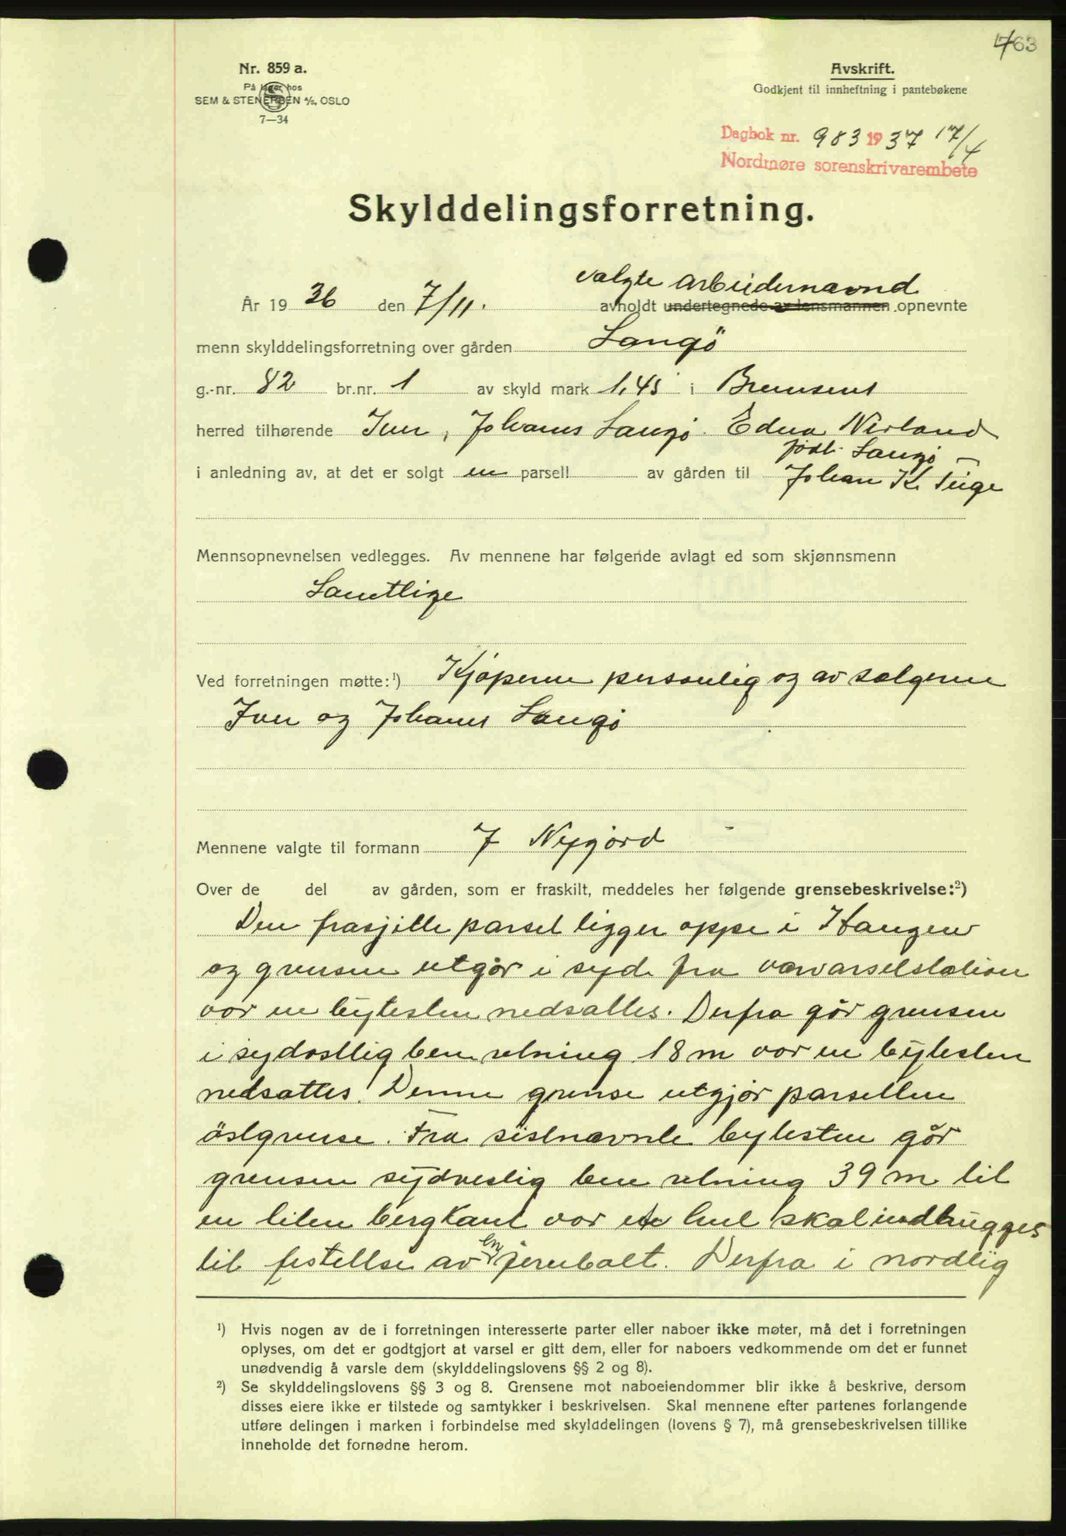 763
Nr. 859 a.
På lager hos
SEM & STENERSEN A/S, OSLO
7—34
Avskrift.
Godkjent til innheftning i pantebøkene
Dagbok nr. 983 1937 17/4
Nordmøre sorenskrivarembete
Skylddelingsforretning.
valgte arbeidernavnd
År 19 36 den 7/11. avholdt undertegnede av lensmannen opnevnte
menn skylddelingsforretning over gården Langö
g.-nr. 82 br.nr. 1 av skyld mark 1,45 i Bremsnes
herred tilhørende Iver, Johanes Langø. Edna Nerland
født. Langø
i anledning av, at det er solgt en parsell av gården til Johan K. Teige
Mennsopnevnelsen vedlegges. Av mennene har følgende avlagt ed som skjønnsmenn
Samtlige
Ved forretningen møtte:¹) Kjøperne personlig og av sælgerne
Iver og Johanes Langø
Mennene valgte til formann J Nygård
Over de del av gården, som er fraskilt, meddeles her følgende grensebeskrivelse:²)
Den frasjille parsel ligger oppe i Haugen
og grensen utgør i syd fra varselstation
vor en bytesten nedsattes. Derfra gör grensen
i sydostlig ben retning 18 m vor en bytesten
nedsattes. Denne grense utgjør parsellen
östgrense. Fra sistnavnte bytesten gör
grensen sydvestlig ben retning 39 m til
en liten bergkant vor et hul skal indhugges
til festellse av en jernbolt. Derfra i nordlig
¹) Hvis nogen av de i forretningen interesserte parter eller naboer ikke møter, må det i forretningen
oplyses, om det er godtgjort at varsel er gitt dem, eller for naboers vedkommende om det er funnet
unødvendig å varsle dem (skylddelingslovens §§ 2 og 8).
²) Se skylddelingslovens §§ 3 og 8. Grensene mot naboeiendommer blir ikke å beskrive, dersom
disses eiere ikke er tilstede og samtykker i beskrivelsen. Skal mennene efter partenes forlangende
utføre delingen i marken i forbindelse med skylddelingen (lovens § 7), må grensebeskrivelsen tillike
inneholde det fornødne herom.